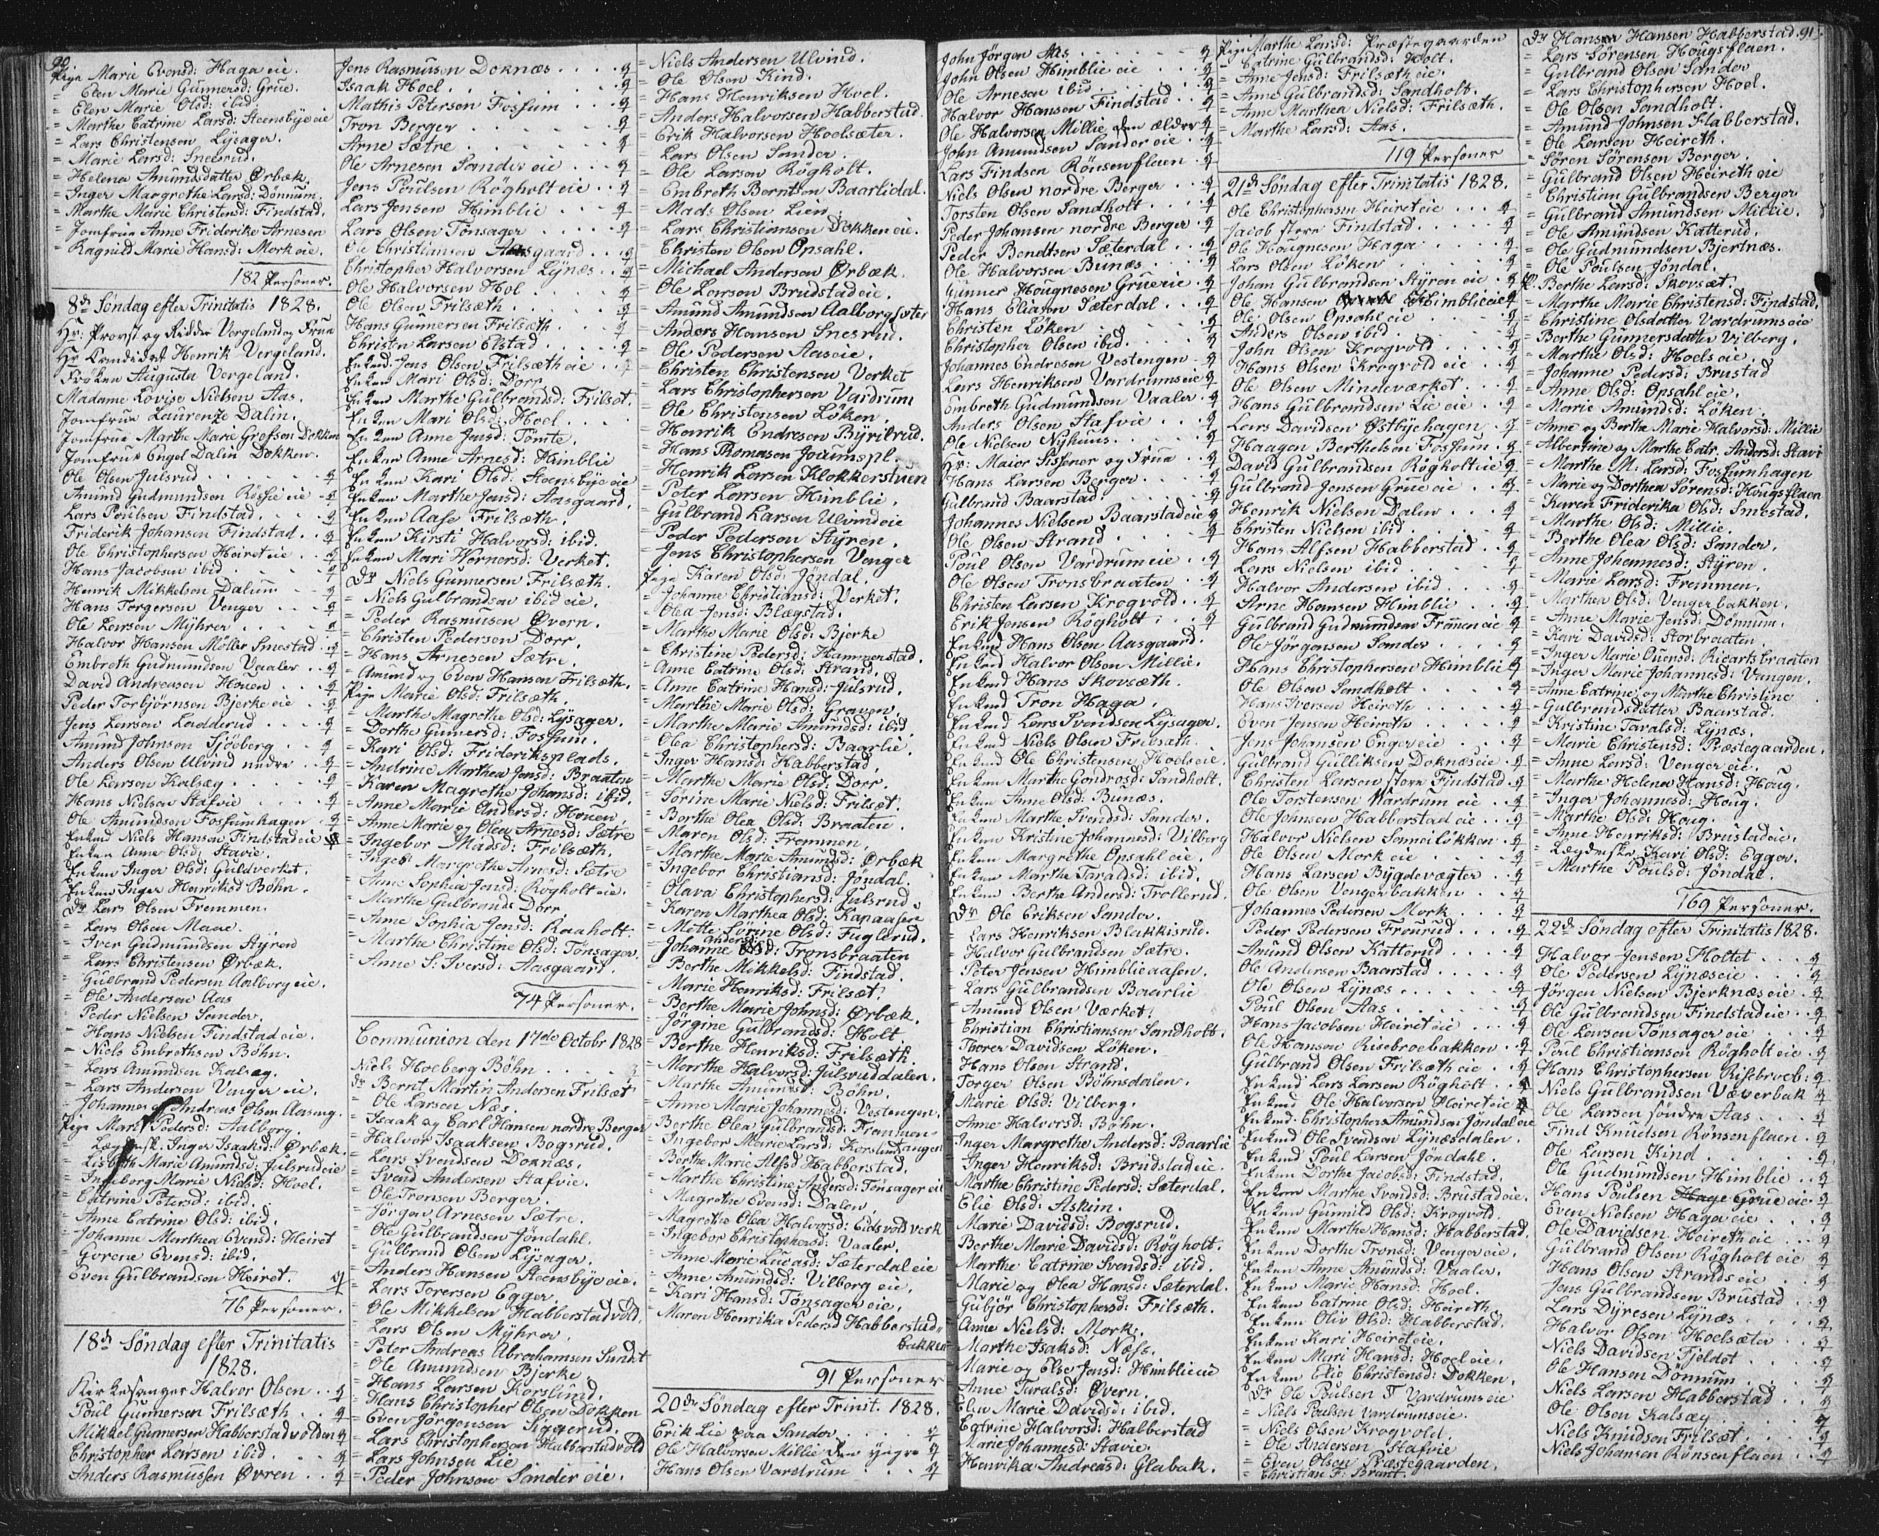 90.
Pige Marie Evensd: Haga eie.
= Eden Marie Gunnersd: Grue.
= Elen Marie Olsd: ibid
= Marthe Catrine Larsd: Steensbye eie
= Lars Christensen Lÿsager.
= Marie Larsd: Sneerud.
= Helena Amundsdatter Ørbæk.
= Inger Margrethe Larsd: Dönnum.
= Marthe Marie Christensd: Findstad.
= Jomfrue Anne Friderike Arnesen
= Ragnild Marie Hansd: Mork eie.
182 Personer.
8de Söndag efter Trinitatis 1828.
Hr: Provst og Ridder Vergeland og Frue
Hr Candidat Henrik Vergeland.
Fröken Augusta Vergeland.
Madame Lovise Nielsen Aas.
Jomfrue Laurenze Dalin.
Jomfrue Marthe Marie Grefson Dokken
Jomfrue Engel Dalin Dokken.
Ole Olsen Julsrud
Amund Gudmundsen Rössie eie
Lars Poulsen Findstad.
Friderik Johansen Findstad
Ole Christophersen Heiret eie
Hans Jacobsen ibid
Henrik Mikkelsen Dalum
Hans Torgersen Venger
Ole Larsen Mÿhrer
Halvor Hansen Möller Smestad
Embreth Gudmundsen Vaaler
David Andreasen Houen
Peder Torbjörnsen Bjerke eie
Jens Larsen Ladderud
Amund Johnsen Sjöeberg
Anders Olsen Ulvind nedre
Ole Larsen Kalsæg
Hans Nielsen Stafvie
Ole Amundsen Fossumhagen
Enkmd Niels Hansen Findstad eie
Enken Anne Olsd: Stavie.
Enken Inger Olsd: Guldverket
Enken Inger Henriksd Böhn.
Dr Lars Olsen Fremmen.
= Lars Olsen Maae.
= Iver Gudmundsen Stÿren
= Lars Christensen Ørbæk.
= Gulbrand Pedersen Aalborg eie.
= Ole Andersen Aas
= Peder Nielsen Sander.
= Hans Nielsen Findstad eie
= Niels Embrethsen Böhn.
= Lars Amundsen Kalsæg.
= Lars Andersen Venger eie.
= Johannes og Andreas Olsen Aasaug
Pige Mari Pedersd: Aalborg.
= Inger Isaaksd: Ørbæk.
= Lisbeth Marie Amundsd: Julsrud eie
= Ingeborg Marie Nielsd: Hoel.
= Catrine Petersd: ibid.
= Anne Catrine Olsd: ibid.
= Johanne Marthea Evensd: Heiret
= Gorene Evensd: ibid.
Even Gulbrandsen Heiret.
76 Personer.
18de Söndag efter Trinitatis
1828.
Kirkesanger Halvor Olsen
Poul Gunnersen Frilsæth
Mikkel Gunnersen Habberstadvolden
Christopher Larsen ibid
Anders Rasmussen Øvren
Jens Rasmusen Doknæs
Isaak Hoel
Mathis Petersen Fossum
Tron Berger
Arne Sætre
Ole Arnesen Sander eie
Jens Poulsen Rögholt eie
Lars Jensen Himblie
Lars Olsen Tönsager
Ole Christiansen Aasgaard
Christopher Halvorsen Lÿnæs
Ole Halvorsen Hol
Ole Olsen Frilsæth
Hans Gunnersen Frilsæth
Christen Larsen Elstad
Enkmd: Jens Olsen Frilsæth eie
Enken Mari Olsd: Dorr
Enken Marthe Gulbrandsd: Frilsæt.
Enken Mari Olsd: Hoel
Enken Anne Jensd: Tömte.
Enken Anne Arnesd: Himblie
Enken Kari Olsd: Steensbÿe eie
Enken Marthe Jensd: Aasgaard.
Enken Aase Frilsæth.
Enken Kirsti Halvorsd: ibid.
Enken Mari Wernersd: Verket.
Dr Niels Gunnersen Frilsæth.
= Niels Gulbrandsen ibid eie.
= Peder Rasmusen Øvern.
= Christen Pedersen Dorr.
= Hans Arnesen Sætre.
= Amund og Even Hansen Frilsæth.
Pige Marie Olsd: Frilsæth.
= Marthe Magrethe Olsd: Lÿsager.
= Dorthe Gunnersd: Fossum.
= Kari Olsd: Frideriksplads.
= Andrine Marthea Jensd: Braaten
= Karen Magrethe Johansd: ibid.
= Anne Marie Andersd: Houen
= Anne Marie og Olea Arnesd: Sætre
= Ingebor Madsd: Frilsæth.
= Ingeb Margrethe Arnesd: Sætre
= Anne Sophia Jensd: Rögholt eie.
= Marthe Gulbrandsd Dorr
= Anne Sophia Jensd: Raaholt.
= Marthe Christine Olsd: Tönsager
= Anne S: Iversd: Aasgaard.
74 Personer.
Communion den 17de Octobr 1828
Niels Hoeberg Böhn
Dr Bernt Martin Andersen Frilsæt
= Ole Larsen Næs.
= Isaak og Carl Hansen nordre Berger
= Halvor Isaaksen Bogsrud.
= Lars Svendsen Doknæs.
= Svend Andersen Stafvie.
= Ole Tronsen Berger.
= Jörgen Arnesen Sætre.
= Ole Gulbrandsen Jöndahl.
= Gulbrand Olsen Lÿsager
= Anders Hansen Steensbye eie.
= Lars Torersen Egger.
= Ole Mikkelsen Habberstadvold.
= Lars Olsen Mÿhrer.
= Peter Andreas Abrahamsen Sundet
= Ole Amundsen Bjerke.
= Hans Larsen Korslund.
= Hans Christopher Olsen Dokken
= Even Jörgensen Siggerud.
= Lars Christophersen Habberstadvold
= Lars Johnsen Lie
= Peder Johnsen Sander eie.
= Niels Andersen Ulvind.
= Ole Olsen Kind.
= Hans Henriksen Hoel.
= Anders Halvorsen Habberstad.
= Erik Halvorsen Hoelsæter.
= Lars Olsen Sander.
= Ole Larsen Rögholt.
= Embreth Berntsen Baarlidal.
= Mads Olsen Lien
= Lars Christiansen Dokken eie.
= Christen Olsen Opsahl.
= Michael Andersen Ørbæk.
= Ole Larsen Brudstad eie.
= Amund Amundsen Aalborgsæter
= Anders Hansen Snesrud.
= Ole Pedersen Aas eie.
= Christen Christensen Verket
= Lars Christophersen Vardrum
= Ole Christensen Löken.
= Henrik Endresen Bÿrilrud.
= Hans Thomasen Joramspl.
= Henrik Larsen Klokkerstuen
= Peter Larsen Himblie.
= Gulbrand Larsen Ulvind eie
= Peder Pedersen Stÿren.
= Jens Christophersen Venger
Pige Karen Olsd: Jöndal.
= Johanne Christiansd: Verket.
= Olea Jensd: Blægstad
= Marthe Marie Olsd: Bjerke
= Christine Pedersd: Hammerstad.
= Anne Catrine Olsd: Strand.
= Anne Catrine Hansd: Julsrud.
= Marthe Marie Olsd: Graven.
= Marthe Marie Amundsd: ibid.
= Olea Christophersd: Baarlie.
= Inger Hansd: Habberstad.
= Marthe Marie Olsd: Dorr.
= Sörine Marie Nielsd: Frilsæt.
= Berthe Olea Olsd: Braaten.
= Maren Olsd: Fremmen.
= Marthe Marie Amundsd: Ørbæk
= Ingebor Christiansd: Jöndal.
= Olava Christophersd: Julsrud.
= Karen Marthea Olsd: Kapaasen
= Mette Lorine Olsd: Fuglerud.
= Johanne Andersd: Tronsbraaten
= Berthe Mikkelsd: Findstad.
= Marie Henriksd: Frilsæt.
= Berthe Marie Johnsd: Ørbæk.
= Jörgine Gulbrandsd: Holt
= Berthe Henriksd: Frilsæth.
= Marthe Halvorsd: Julsruddalen.
= Marthe Amundsd: Böhn.
= Anne Marie Johannesd: Vestengen.
= Berthe Olea Gulbrandsd: Fremmen
= Ingebor Marie Larsd: Korslundengen
= Berthe Marie Alfsd Habberstad.
= Marthe Christine Andersd: Tönsager eie
= Magrethe Evensd: Dalen
= Magrethe Olea Halvorsd: Eidsvoldverk
= Ingebor Christophersd: Vaaler.
= Anne Marie Lucasd: Sæterdal eie
= Anne Amundsd: Vilberg eie.
= Kari Hansd: Tönsager eie.
= Maren Henrika Pedersd Habberstad-
bakken
91 Personer
20de Söndag efter Trinit. 1828.
Erik Lie paa Sander
Ole Halvorsen Millie den yngre
Hans Olsen Vardrum
John Jörgen Aas
John Olsen Himblie eie
Ole Arnesen ibid
Halvor Hansen Findstad
Ole Halvorsen Millie den ældre
John Amundsen Sander eie
Lars Findsen Rönsenflaen
Niels Olsen nordre Berger
Torsten Olsen Sandholt
Peder Johansen nordre Berger
Peder Bendtsen Sæterdal
Ole Halvorsen Bunæs
Gunner Hougnesen Grue eie
Hans Eliasen Sæterdal
Christen Löken
Christopher Olsen ibid.
Johannes Endresen Vestengen
Lars Henriksen Vardrums eie
Embreth Gudmundsen Vaaler
Anders Olsen Stafvie
Ole Nielsen Nyhuus
Hr: Maior Sissener og Frue
Hans Larsen Berger
Gulbrand Baarstad
Johannes Nielsen Baarstad eie
Ole Olsen Strand
Poul Olsen Vardrum eie
Ole Olsen Tronsbraaten
Christen Larsen Krogvold
Erik Jensen Rögholt
Enkmd Hans Olsen Aasgaard.
Enkmd Halvor Olsen Millie.
Enkmd Hans Skovsæth.
Enkmd Tron Haga.
Enkmd Lars Svendsen Lysager.
Enkmd Niels Olsen Frilsæth
Enkmd Ole Christensen Hoels eie.
Enken Marthe Gondrosd: Sandholt.
Enken Anne Olsd: Bunæs.
Enken Marthe Svendsd: Sander.
Enken Kristine Johannesd: Vilberg
Enken Margrethe Opsahl eie.
Enken Marthe Taraldsd: ibid.
Enken Berthe Andersd: Trollerud.
Dr Ole Eriksen Sander.
= Lars Henriksen Blakkisrud.
= Halvor Gulbrandsen Sætre.
= Peter Jensen Himblieaasen.
= Lars Gulbrandsen Baarlie
= Amund Olsen Værket.
= Christian Christiansen Sandholt.
= Thorer Davidsen Löken.
= Hans Olsen Strand.
= Torger Olsen Böhnsdalen.
= Marie Olsd: Vilberg.
= Anne Halvorsd: Böhn.
= Inger Margrethe Andersd: Baarlie
= Inger Henriksd: Brudstad eie.
= Marthe Christine Pedersd: Sæterdal.
= Elie Olsd: Askim.
= Marie Davidsd: Bogsrud.
= Berthe Marie Davidsd: Rögholt.
= Marthe Catrine Svendsd: ibid.
= Marie og Olea Hansd: Sæterdal.
= Gubjör Christophersd: Frilsæth.
= Anne Nielsd: Mork.
= Marthe Isaksd: Næss.
= Marie og Else Jensd: Himblie eie
= Anne Taralsd: Øvern.
= Elen Marie Davidsd: ibid.
= Catrine Halvorsd: Habberstad
= Marie Johannesd: Stavie.
= Henrika Andreasd: Glabak.
Pige Marthe Larsd: Præstegaarden
= Catrine Gulbrandsd: Holt.
= Anne Jensd: Frilsæth eie.
= Anne Gulbrandsd: Sandholt.
= Anne Marthea Nielsd: Frilsæth.
= Marthe Larsd: Aas.
119 Personer
21de Söndag efter Trinitatis 1828.
Ole Christophersen Heiret eie
Jacob store Findstad
Ole Hougnesen Haga
Lars Olsen Löken
Johan Gulbrandsen Stÿren eie
Ole Hansen Himblie eie
Ole Olsen Opsahl eie
Anders Olsen ibid.
John Olsen Krogvold
Hans Olsen Krogvold eie
Ole Olsen Mindeværket
Hans Gulbrandsen Lie eie
Lars Davidsen Østbÿehagen
Haagen Berthelsen Fossum
David Gulbrandsen Rögholt eie
Gulbrand Jensen Grue eie
Henrik Nielsen Daler
Christen Nielsen ibid.
Hans Alfsen Habberstad
Lars Nielsen ibid
Halvor Andersen ibid
Arne Hansen Himblie
Gulbrand Gudmundsen Frömen eie
Ole Jörgensen Sander
Hans Christophersen Himblie
Ole Olsen Sandholt
Hans Iversen Heireth
Even Jensen Heireth
Jens Johansen Enger eie
Gulbrand Gulliksen Doknæs eie
Christen Larsen store Findstad
Ole Torstensen Vardrum eie
Ole Johnsen Habberstad eie
Halvor Nielsen Sonneilökken
Ole Olsen Mork eie
Hans Larsen Bÿgdevægter
Ole Olsen Vengerbakken
Johannes Pedersen Mork
Peder Pedersen Fronrud
Amund Olsen Katterud
Ole Andersen Baarstad
Ole Olsen Lÿnæs
Poul Olsen Aas
Hans Jacobsen Heiret eie
Ole Hansen Risebroebakken
Gulbrand Olsen Frilsæth eie
Enkmd Lars Larsen Rögholt
Enkmd Ole Halvorsen Heiret eie
Enkmd Christopher Amundsen Jöndal eie
Enkmd Ole Svendsen Lÿnesdalen.
Enkmd Poul Larsen Jöndahl.
Enken Dorthe Jacobsd: Findstad.
Enken Marthe Svendsd: Brustad eie.
Enken Gunnild Olsd: Krogvold.
Enken Marthe Hansd: Habberstad.
Enken Dorthe Tronsd: Venger eie.
Enken Anne Amundsd: Vaaler.
Enken Marie Hansd: Hoel.
Enken Catrine Olsd: Heireth.
Enken Oliv Olsd: Habberstad.
Enken Kari Heiret eie.
Enken Mari Hansd: Hoel eie.
Enken Elie Christensd: Dokken.
Dr Ole Poulsen Vardrums eie
= Niels Poulsen Vardrumseie.
= Niels Olsen Krogvold.
= Ole Andersen Stafvie
= Even Olsen Præstegaarden.
= Christian F: Brant.
91.
Dr Hansen Hansen Habberstad.
= Lars Sörensen Hougsflaen.
= Gulbrand Olsen Sander
= Lars Christophersen Hoel.
= Ole Olsen Sandholt.
= Amund Johnsen Habberstad.
= Ole Larsen Heireth.
= Sören Sörensen Berger.
= Gulbrand Olsen Heireth eie
= Christian Gulbrandsen Berger
= Gulbrand Amundsen Millie.
= Ole Amundsen Katterud.
= Ole Gudmundsen Bjertnæs.
= Ole Poulsen Jöndal.
P. Berthe Larsd: Skovsæt.
= Marthe Marie Christensd: Findstad.
= Christine Olsdatter Vardrums eie
= Berthe Gunnersdatter Vilberg.
= Marthe Olsd: Hoels eie.
= Johanne Pedersd: Brustad
= Anne Olsd: Opsahl eie.
= Marie Amundsd: Löken.
= Anne og Berthe Marie Halvorsd: Millie
= Albertine og Marthe Catr. Andersd: Stavi
= Marthe M. Larsd: Fossumhagen
= Marie og Dorthea Sörensd: Hougsflaen
= Karen Friderika Olsd: Smestad.
= Marthe Olsd: Millie.
= Berthe Olea Olsd: Sander.
= Anne Johannesd: Stÿren.
= Marie Larsd: Fremmen.
= Marthea Olsd: Vengerbakken.
= Anne Marie Jensd: Dönnum.
= Kari Davidsd: Storbraaten.
= Inger Marie Ouersd: Ricartsbraaten
= Inger Marie Johannesd: Vangen.
= Anne Catrine og Marthe Christine
Gulbrandsdatter Baarstad.
= Kristine Taralsd: Lÿnæs.
= Marie Christensd: Præstegaarden.
= Anne Larsd: Venger eie.
= Marthe Helena Hansd: Houg.
= Inger Johannesd: Houg.
= Marthe Olsd: Houg.
= Anne Henriksd: Brustad eie.
= Kari Olsd: Egger.
= Marthe Poulsd: Jöndal.
169 Personer.
22de Söndag efter Trinitatis 1828.
Halvor Jensen Holtet
Ole Pedersen Lÿnæs eie
Jörgen Nielsen Bjerknæs eie
Ole Gulbrandsen Findstad eie
Ole Larsen Tönsager eie
Poul Christiansen Rögholt eie
Hans Christophersen Risebroeb.
Niels Gulbrandsen Væverbak
Ole Larsen söndre Aas
Find Knudsen Rönsenflaen
Ole Larsen Kind
Ole Gudmundsen Himblie
Hans Poulsen Haga Grue eie
Even Nielsen Haga eie
Ole Davidsen Heireth eie
Gulbrand Olsen Rögholt eie
Hans Olsen Strands eie
Jens Gulbrandsen Brustad
Lars Dyresen Lÿnæs
Halvor Olsen Hoelsæter
Niels Davidsen Fjeldet
Ole Hansen Dönnum
Niels Larsen Habberstad
Ole Olsen Kalsæg
Niels Knudsen Frilsæt
Niels Johansen Rönsenflaen